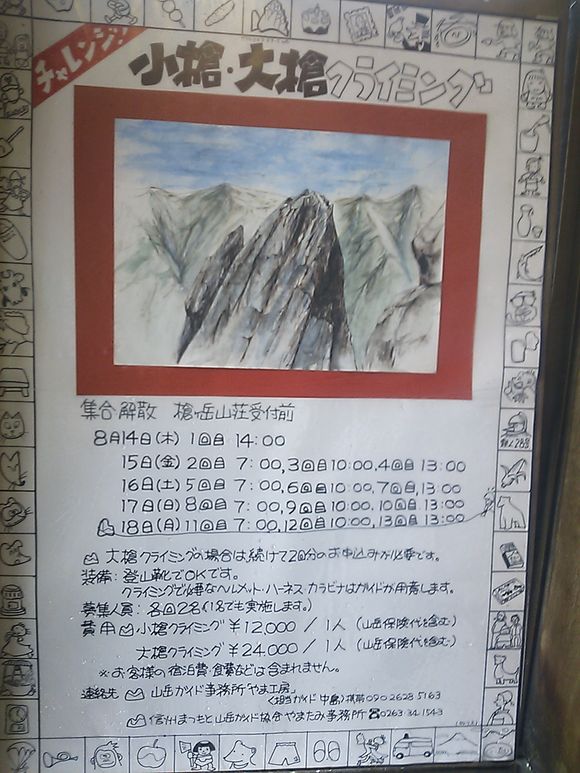 チャレンジ!
小槍・大槍クライミング
集合解散 槍ヶ岳山荘受付前
8月14日(木) 1回目 14:00
15日(金) 2回目 7:00, 3回目 10:00, 4回目 13:00
16日(土) 5回目 7:00, 6回目 10:00, 7回目 13:00
17日(日) 8回目 7:00, 9回目 10:00, 10回目 13:00
18日(月) 11回目 7:00, 12回目 10:00, 13回目 13:00
大槍クライミングの場合は続けて2回分のお申込みが必要です。
装備: 登山靴でOKです。
クライミングで必要なヘルメット・ハーネス・カラビナはガイドが用意します。
募集人員: 各回2名(1名でも実施します。)
費用 小槍クライミング ¥12,000 / 1人 (山岳保険代を含む)
大槍クライミング ¥24,000 / 1人 (山岳保険代を含む)
※お客様の宿泊費・食費などは含まれません。
連絡先 山岳ガイド事務所「やま工房」
〈担当ガイド 中島〉携帯 090 2628 5163
信州まつもと山岳ガイド協会やまたみ事務所 ☎0263-34-1543